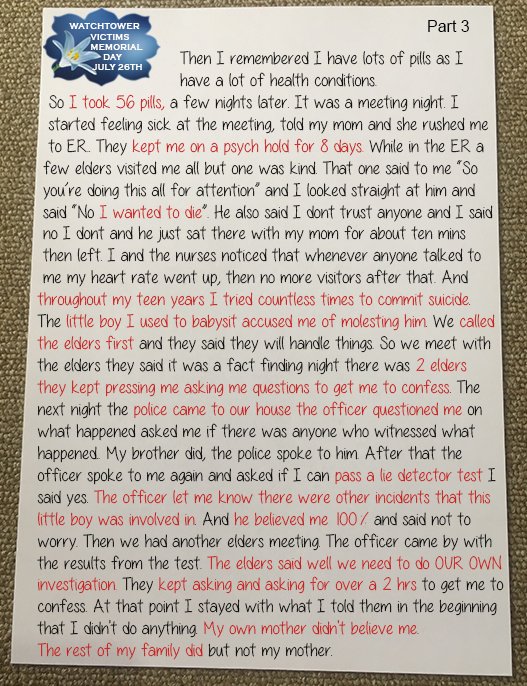 WATCHTOWER
VICTIMS
MEMORIAL
DAY
JULY 26TH
Part 3
Then I remembered I have lots of pills as I
have a lot of health conditions.
So I took 56 pills, a few nights later. It was a meeting night. I
started feeling sick at the meeting, told my mom and she rushed me
to ER.. They kept me on a psych hold for 8 days. While in the ER a
few elders visited me all but one was kind. That one said to me "So
you're doing this all for attention" and I looked straight at him and
said "No I wanted to die". He also said I dont trust anyone and I said
no I dont and he just sat there with my mom for about ten mins
then left. I and the nurses noticed that whenever anyone talked to
me my heart rate went up, then no more visitors after that. And
throughout my teen years I tried countless times to commit suicide.
The little boy I used to babysit accused me of molesting him. We called
the elders first and they said they will handle things. So we meet with
the elders they said it was a fact finding night there was 2 elders
they kept pressing me asking me questions to get me to confess. The
next night the police came to our house the officer questioned me on
what happened asked me if there was anyone who witnessed what
happened. My brother did, the police spoke to him. After that the
officer spoke to me again and asked if I can pass a lie detector test I
said yes. The officer let me know there were other incidents that this
little boy was involved in. And he believed me 100% and said not to
worry. Then we had another elders meeting. The officer came by with
the results from the test. The elders said well we need to do OUR OWN
investigation. They kept asking and asking for over a 2 hrs to get me to
confess. At that point I stayed with what I told them in the beginning
that I didn't do anything. My own mother didn't believe me.
The rest of my family did but not my mother.